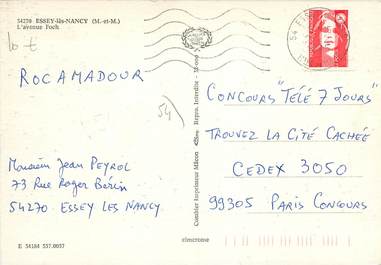 54270 ESSEY-lès-NANCY (M.-et-M.)
L'avenue Foch
10 €
ROCAMADOUR
54)
Monsieur Jean PEYROL
73 Rue Roger Bérin
54270 ESSEY LES NANCY
E 54184 557.0037
Combier Imprimeur Mâcon
Repro. Interdite - Mcone
CONCOURS "TÉLÉ 7 JOURS"
TROUVEZ LA CITÉ CACHÉE
CEDEX 3050
99305 PARIS CONCOURS